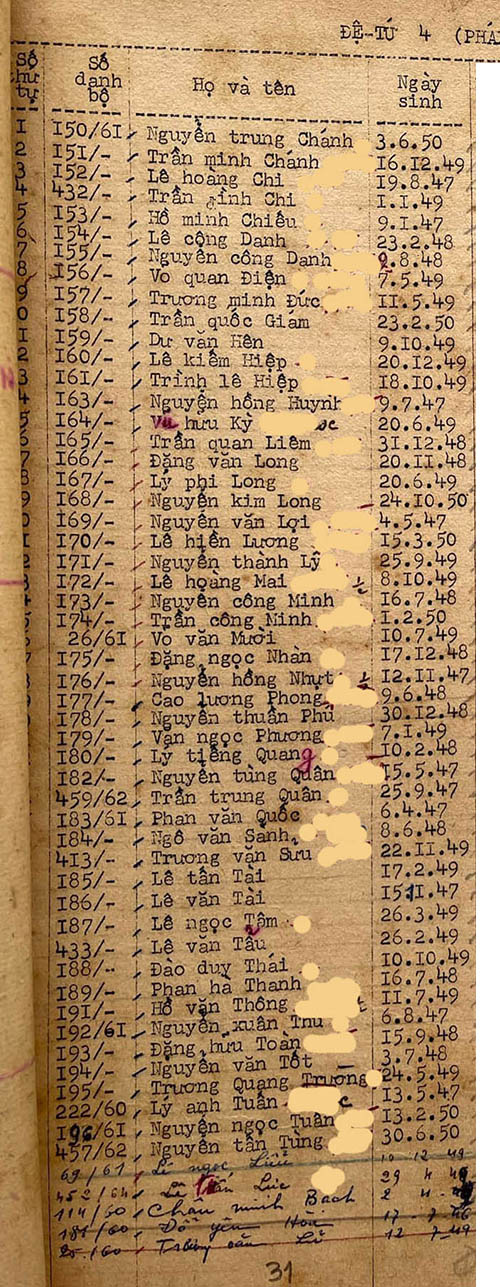 ĐỆ-TỨ 4 (PHÁ
Số thứ tự Số danh bộ Họ và tên Ngày sinh
1 150/61 Nguyễn trung Chánh 3.6.50
2 151/- Trần minh Chánh 16.12.49
3 152/- Lê hoàng Chi 19.8.47
4 432/- Trần Chi 1.1.49
5 153/- Hồ minh Chiếu 9.1.47
6 154/- Lê công Danh 23.2.48
7 155/- Nguyễn công Danh 9.8.48
8 156/- Vo quan Điện 7.5.49
9 157/- Trương minh Đức 11.5.49
0 158/- Trần quốc Giám 23.2.50
1 159/- Dư văn Hên 9.10.49
2 160/- Lê kiêm Hiệp 20.12.49
3 161/- Trình lê Hiệp 18.10.49
4 163/- Nguyễn hồng Huynh 9.7.47
5 164/- Vũ hữu Kỳ 20.6.49
6 165/- Trần quan Liêm 31.12.48
7 166/- Đặng văn Long 20.11.48
8 167/- Lý phi Long 20.6.49
9 168/- Nguyễn kim Long 24.10.50
0 169/- Nguyễn văn Lợi 4.5.47
1 170/- Lê hiền Lương 15.3.50
2 171/- Nguyễn thành Lý 25.9.49
3 172/- Lê hoàng Mai 8.10.49
4 173/- Nguyễn công Minh 16.7.48
5 174/- Trần công Minh 1.2.50
26/61 Vo văn Mười 10.7.49
175/- Đặng ngọc Nhàn 17.12.48
176/- Nguyễn hồng Nhựt 12.11.47
177/- Cao lương Phong 9.6.48
178/- Nguyễn thuần Phú 30.12.48
179/- Văn ngọc Phương 7.1.49
180/- Lý tiếng Quang 10.2.48
182/- Nguyễn tùng Quân 15.5.47
459/62 Trần trung Quân 25.9.47
183/61 Phan văn Quốc 6.4.47
184/- Ngô văn Sanh 8.6.48
413/- Trương văn Sưu 22.11.49
185/- Lê tấn Tài 17.2.49
186/- Lê văn Tài 15.11.47
187/- Lê ngọc Tâm 26.3.49
433/- Lê văn Tâu 26.2.49
188/- Đào duy Thái 10.10.49
189/- Phan hà Thanh 16.7.48
191/- Hồ văn Thông 11.7.49
192/61 Nguyễn xuân Thu 6.8.47
193/- Đặng hưu Toàn 15.9.48
194/- Nguyễn văn Tốt 3.7.48
195/- Trương Quang Trường 24.5.49
222/60 Lý anh Tuấn 13.5.47
196/61 Nguyễn ngọc Tuấn 13.2.50
457/62 Nguyễn tấn Tùng 30.6.50
69/61 Lê ngọc 10 12 49
452/64 Lê Lúc 29 4
114/60 Châu minh Bach 2
181/60 Đỗ yên Hòa 17
/60 văn 12 7 49
31